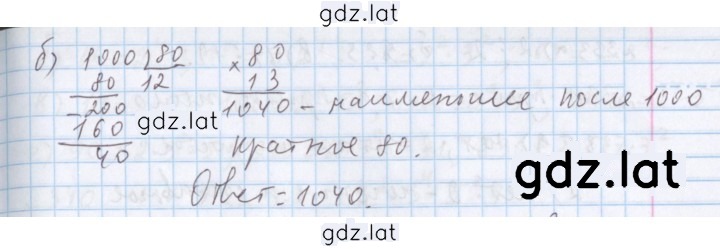 gdz.lat
б) 1000 | 80    × 80
80    12    13
200    1040 - наименьшее после 1000
160    gdz.lat
40    кратное 80.
gdz.lat
Ответ = 1040.
gdz.lat